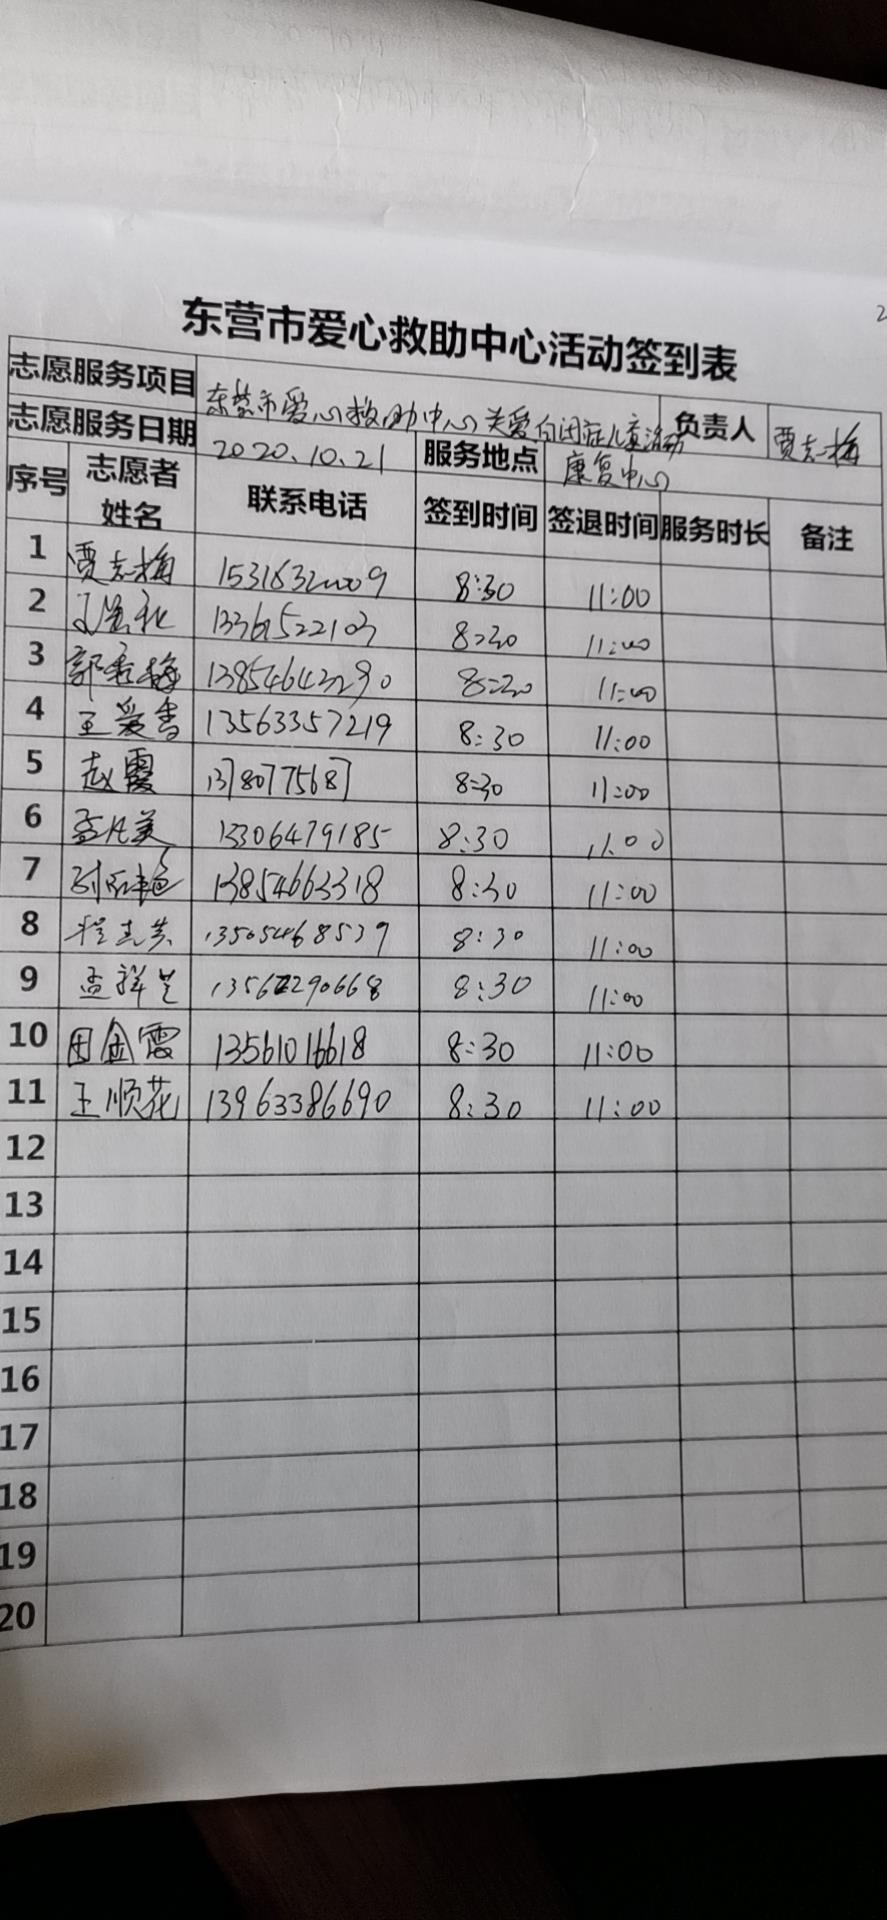 东营市爱心救助中心活动签到表
志愿服务项目 东营市爱心救助中心关爱自闭症儿童活动 负责人 贾志梅
志愿服务日期 2020.10.21 服务地点 康复中心
序号 志愿者姓名 联系电话 签到时间 签退时间 服务时长 备注
1 贾志梅 8:30 11:00
2 8:30 11:00
3 郭秀梅 13854643290 8:30 11:00
4 王爱香 13563357219 8:30 11:00
5 赵霞 13780775687 8:30 11:00
6 孟凡美 13306479185 8:30 11:00
7 13854663318 8:30 11:00
8 13505468539 8:30 11:00
9 孟祥兰 13562290668 8:30 11:00
10 田金霞 13561016618 8:30 11:00
11 王顺花 13963386690 8:30 11:00
12
13
14
15
16
17
18
19
20